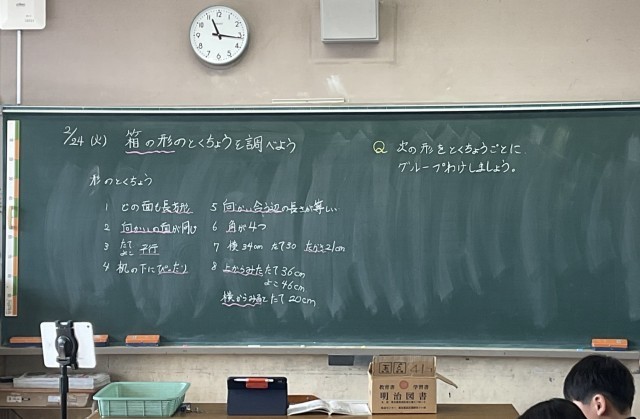 2/24 (火) 箱の形のとくちょうを調べよう
Q 次の形をとくちょうごとに
グループわけしましょう。
形のとくちょう
1 どの面も長方形
2 向かいの面が同じ
3 たて よこ 平行
4 机の下にぴったり
5 向かい合う辺の長さが等しい
6 角が4つ
7 横34cm たて30 たかさ21cm
8 上からみた たて36cm
よこ46cm
横からみた たて20cm
教育書 学習書
明治図書